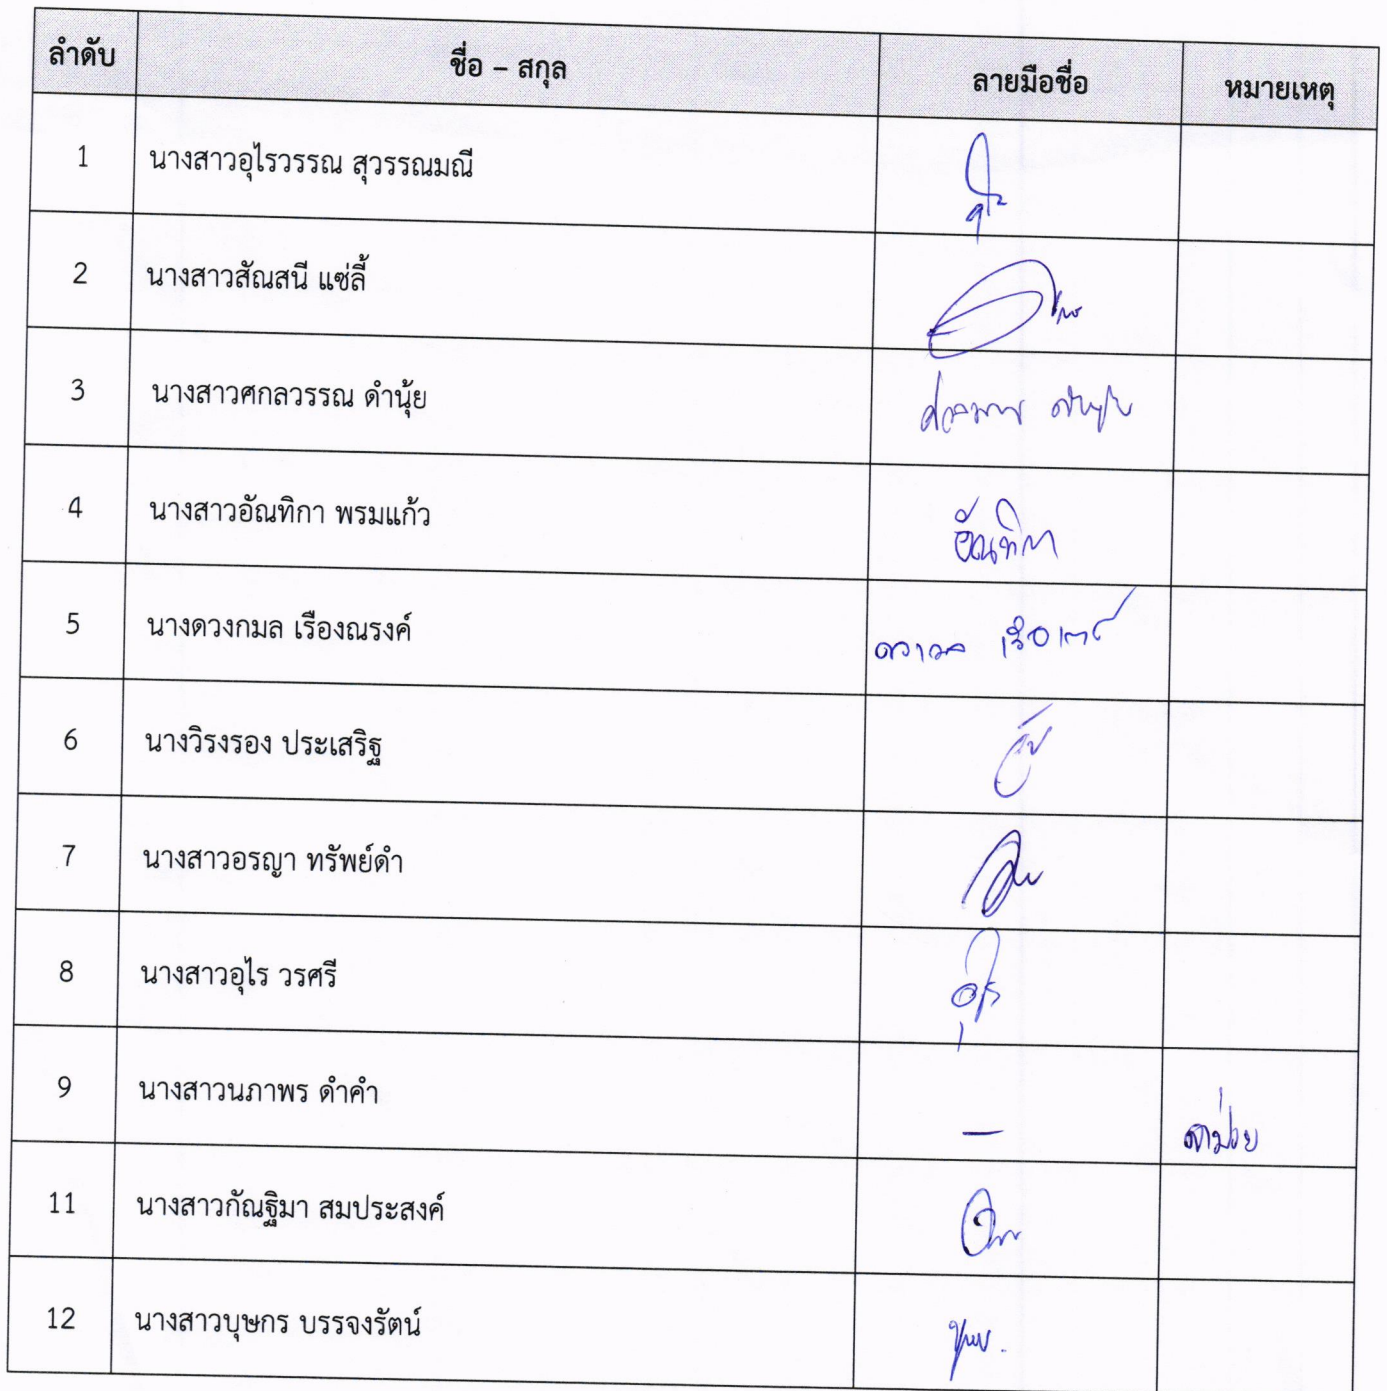 ลำดับ ชื่อ – สกุล ลายมือชื่อ หมายเหตุ
1 นางสาวอุไรวรรณ สุวรรณมณี
2 นางสาวสัณสนี แซ่ลี้
3 นางสาวศกลวรรณ ดำนุ้ย
4 นางสาวอัณทิกา พรมแก้ว อัณทิกา
5 นางดวงกมล เรืองณรงค์
6 นางวิรงรอง ประเสริฐ
7 นางสาวอรญา ทรัพย์ดำ
8 นางสาวอุไร วรศรี อุไร
9 นางสาวนภาพร ดำคำ — ลาป่วย
11 นางสาวกัณฐิมา สมประสงค์
12 นางสาวบุษกร บรรจงรัตน์